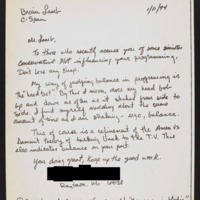 Brian Lamb
C-Span
1/11/94
Mr. Lamb,
To those who recently accuse you of some sinister
conservatives influencing your programming.
Don't lose any sleep.
My way of judging balance in programming is
the "head bob". By this I mean, does my head bob
up and down as often as it shakes from side to
side. I find myself nodding about the same
amount of time as I am shaking - ergo, balance.
This of course is a refinement of the
talking back to the T.V. This
also indicates balance on your part.
You doing great, keep up the good work.
Raytown, Mo 64138